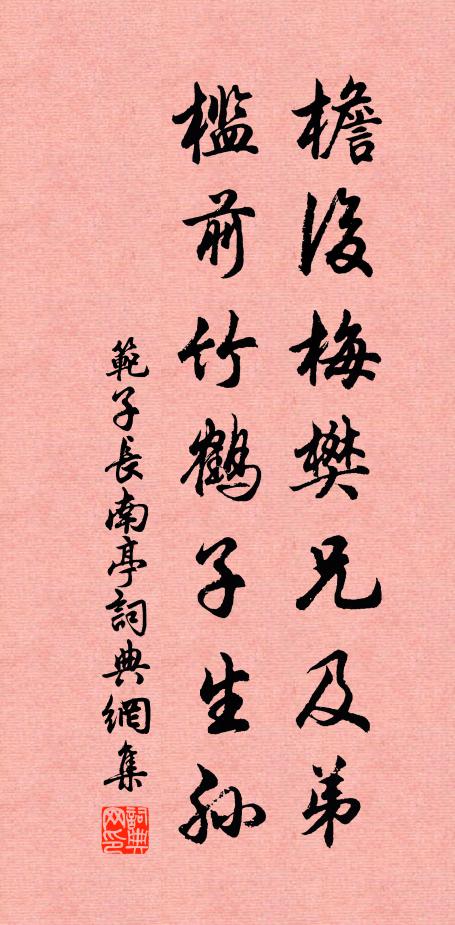 檐後梅樊兄及弟
檻前竹鶴子生孫
範子長南亭詞典網集
詞典网印